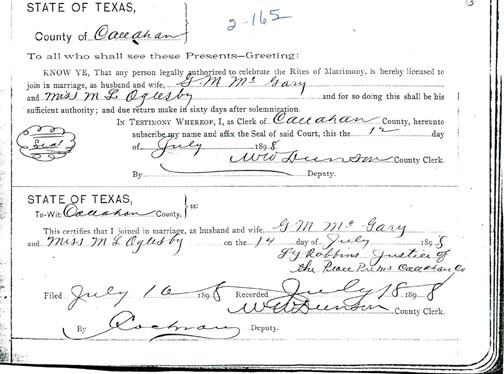 STATE OF TEXAS,
County of Callahan
2-165
To all who shall see these Presents—Greeting:
KNOW YE, That any person legally authorized to celebrate the Rites of Matrimony, is hereby licensed to
join in marriage, as husband and wife, G. M. Mc Gary
and Miss M L Oglesby and for so doing this shall be his
sufficient authority; and due return make in sixty days after solemnization.
IN TESTIMONY WHEREOF, I, as Clerk of Callahan County, hereunto
subscribe my name and affix the Seal of said Court, this the 12 day
Seal
of July 1898
W W Dunson County Clerk.
By Deputy.
STATE OF TEXAS,
ss:
To-Wit: Callahan County,
This certifies that I joined in marriage, as husband and wife, G M Mc Gary
and Miss M L Oglesby on the 14 day of July 1898
Robbins Justice of
the Peace Callahan Co
Filed July 16 1898 Recorded July 18 1898
W W Dunson County Clerk.
By Cochran Deputy.